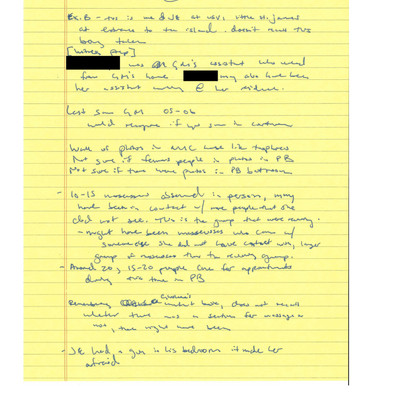 Ex. B - this is me & JE at USVI, little St. James
at entrance to the island. doesn't recall this
being taken
[witness prep]
was GM's assistant who worked
from GM's home may also have been
her assistant working @ her residence.
Last saw GM 05-06
would recognize if you saw in
Wall of photos in NYC were like trophies
Not sure if famous people in photos in PB
Not sure if there were photos in PB bathroom
- 10-15 masseuses observed in person, may
have been in contact w/ more people that she
did not see. This is the group that were recurring.
- might have been masseuses who came w/
someone else she did not have contact with, larger
group of masseuses than the recurring group.
- Around 20, 15-20 people come for appointments
during this time in PB
Remembering Ghislaine's contact book, does not recall
whether there was a section for massages or
not, there might have been
- JE had a gun in his bedroom it made her
afraid